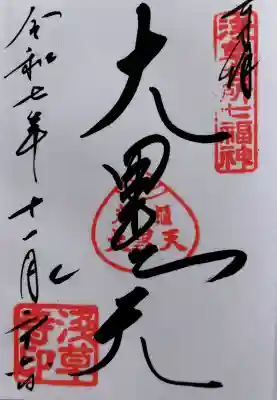 奉拝
浅草名所七福神
大黒天
令和七年十一月
浅草寺印